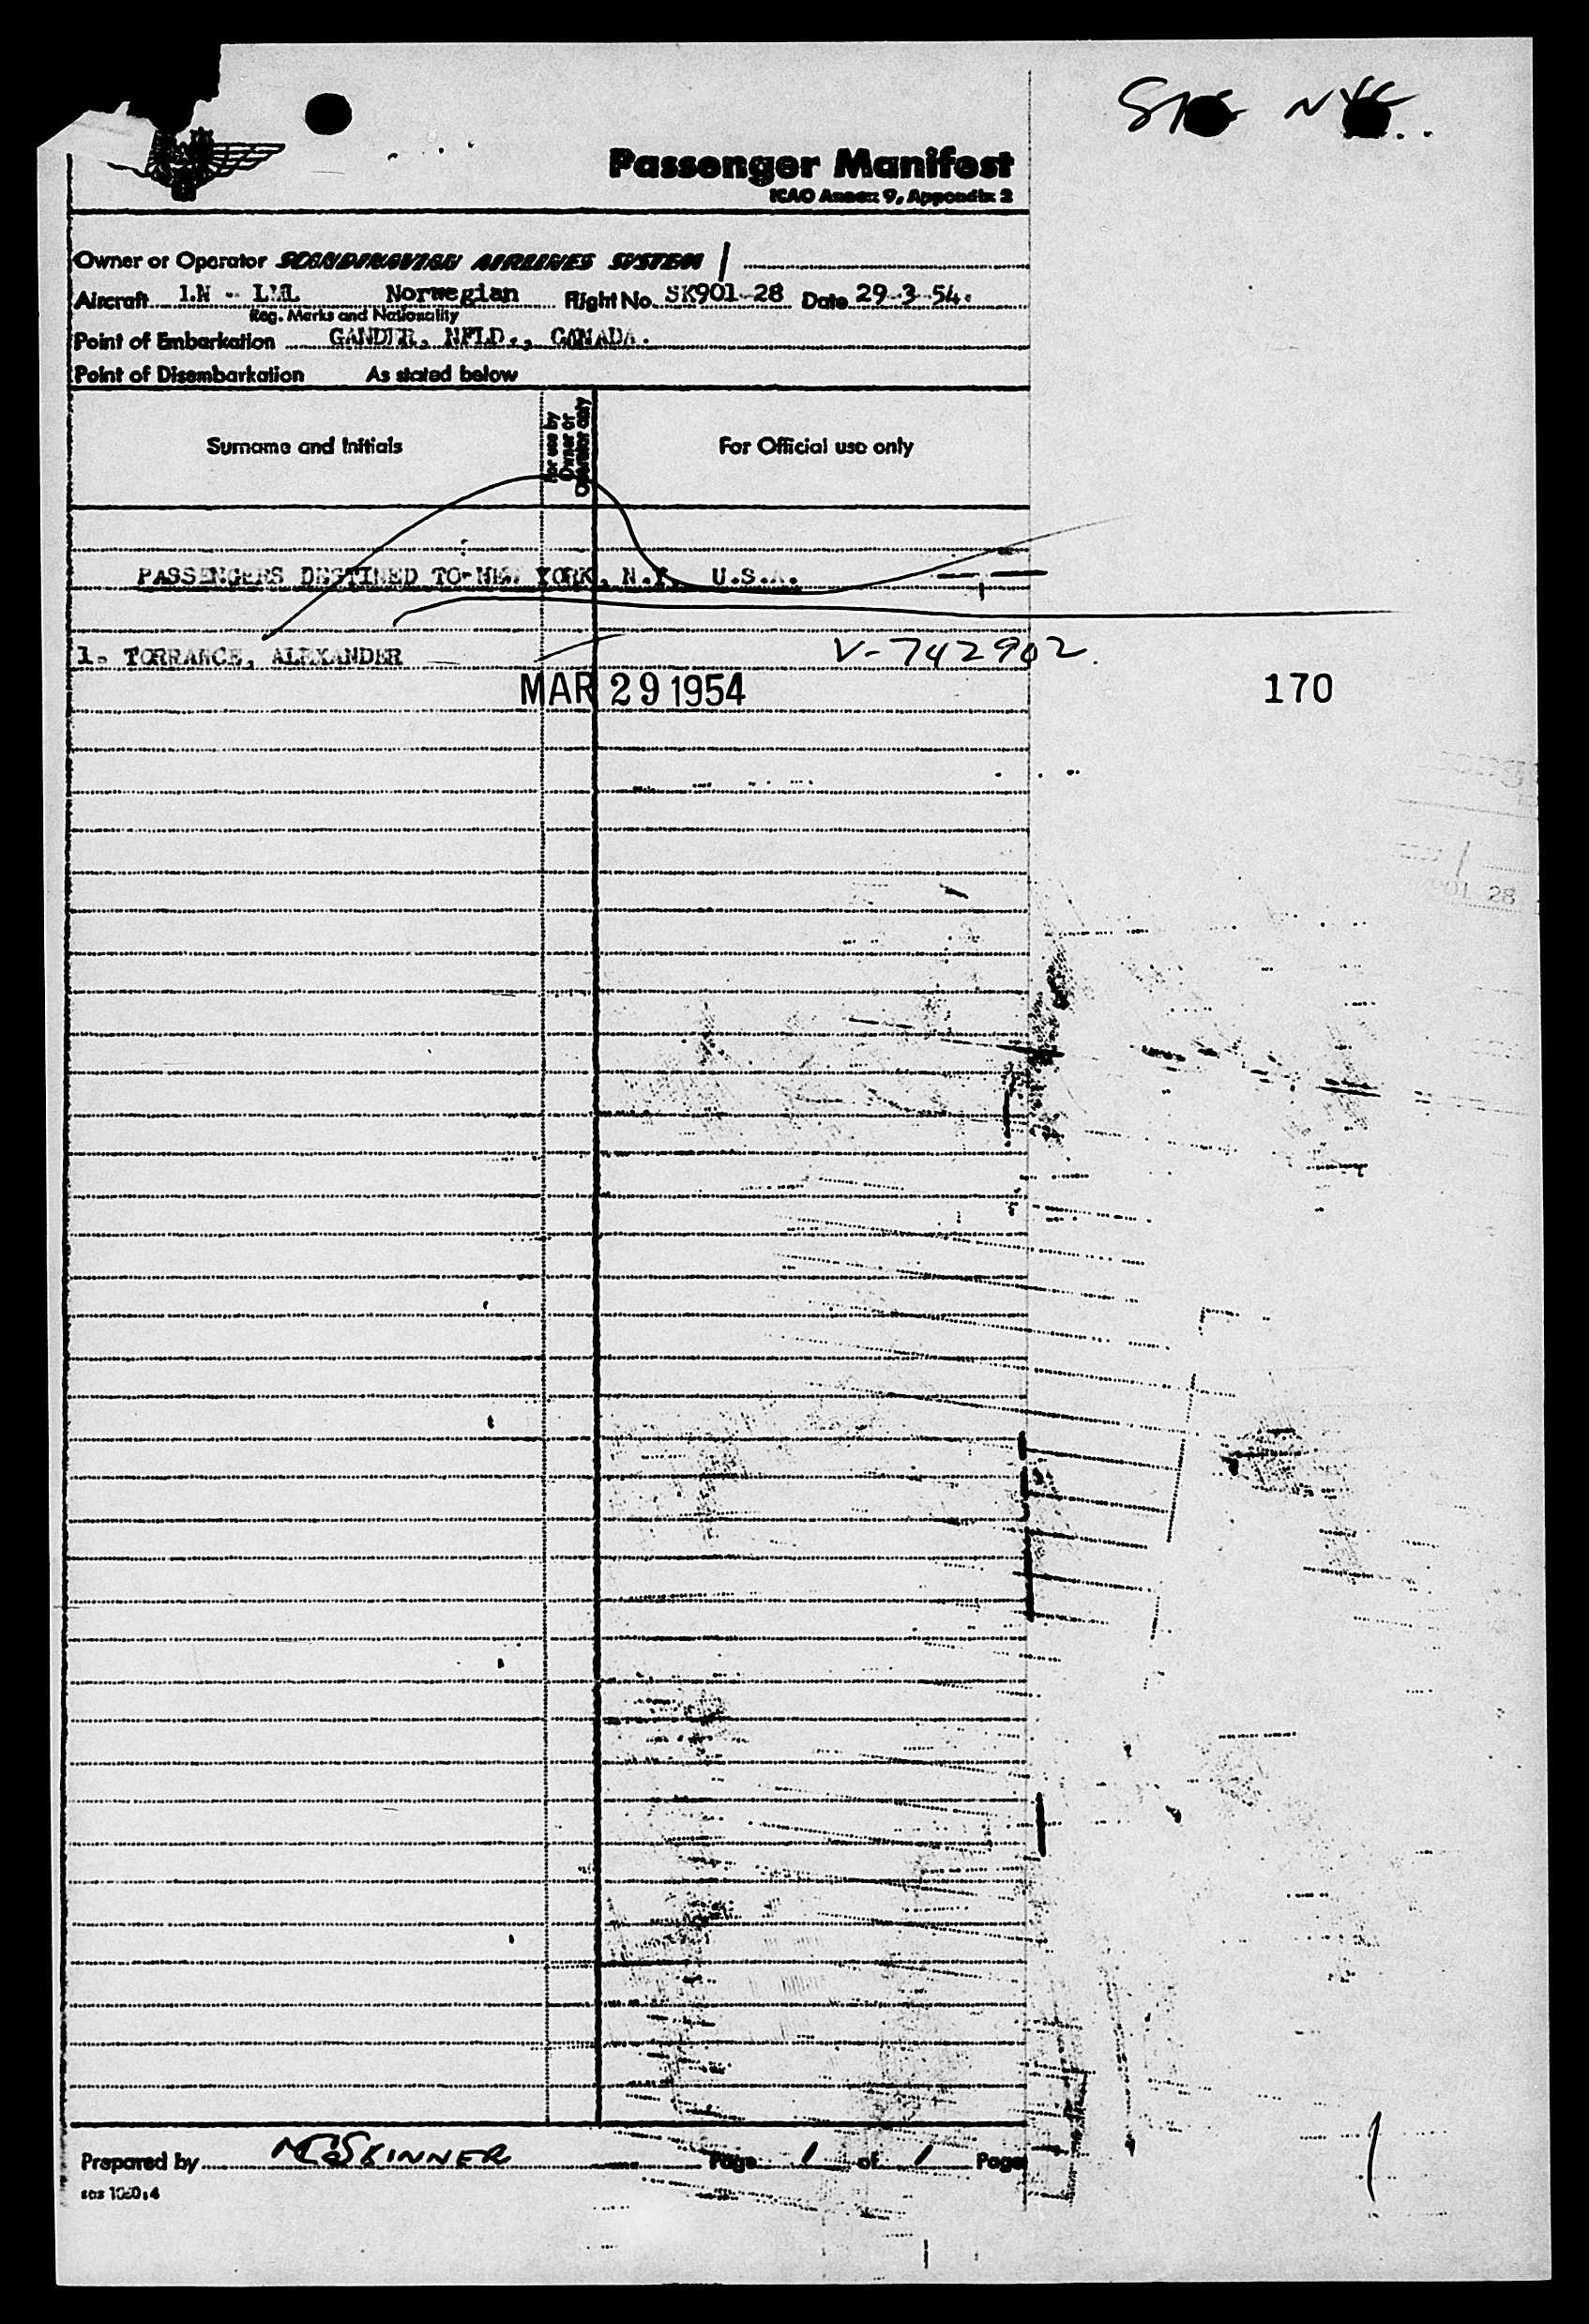 Passenger Manifest
ICAO Annex 9, Appendix 2
Owner or Operator SCANDINAVIAN AIRLINES SYSTEM
Aircraft LN - LML Norwegian Flight No. SK901-28 Date 29-3-54.
Reg. Marks and Nationality
Point of Embarkation GANDER, NFLD., CANADA.
Point of Disembarkation As stated below
Surname and Initials
For use by Owner or Operator only
For Official use only
PASSENGERS DESTINED TO NEW YORK, N.Y. U.S.A.
1. TORRANCE, ALEXANDER V-742902
MAR 29 1954 170
Prepared by SKINNER Page 1 of 1 Page